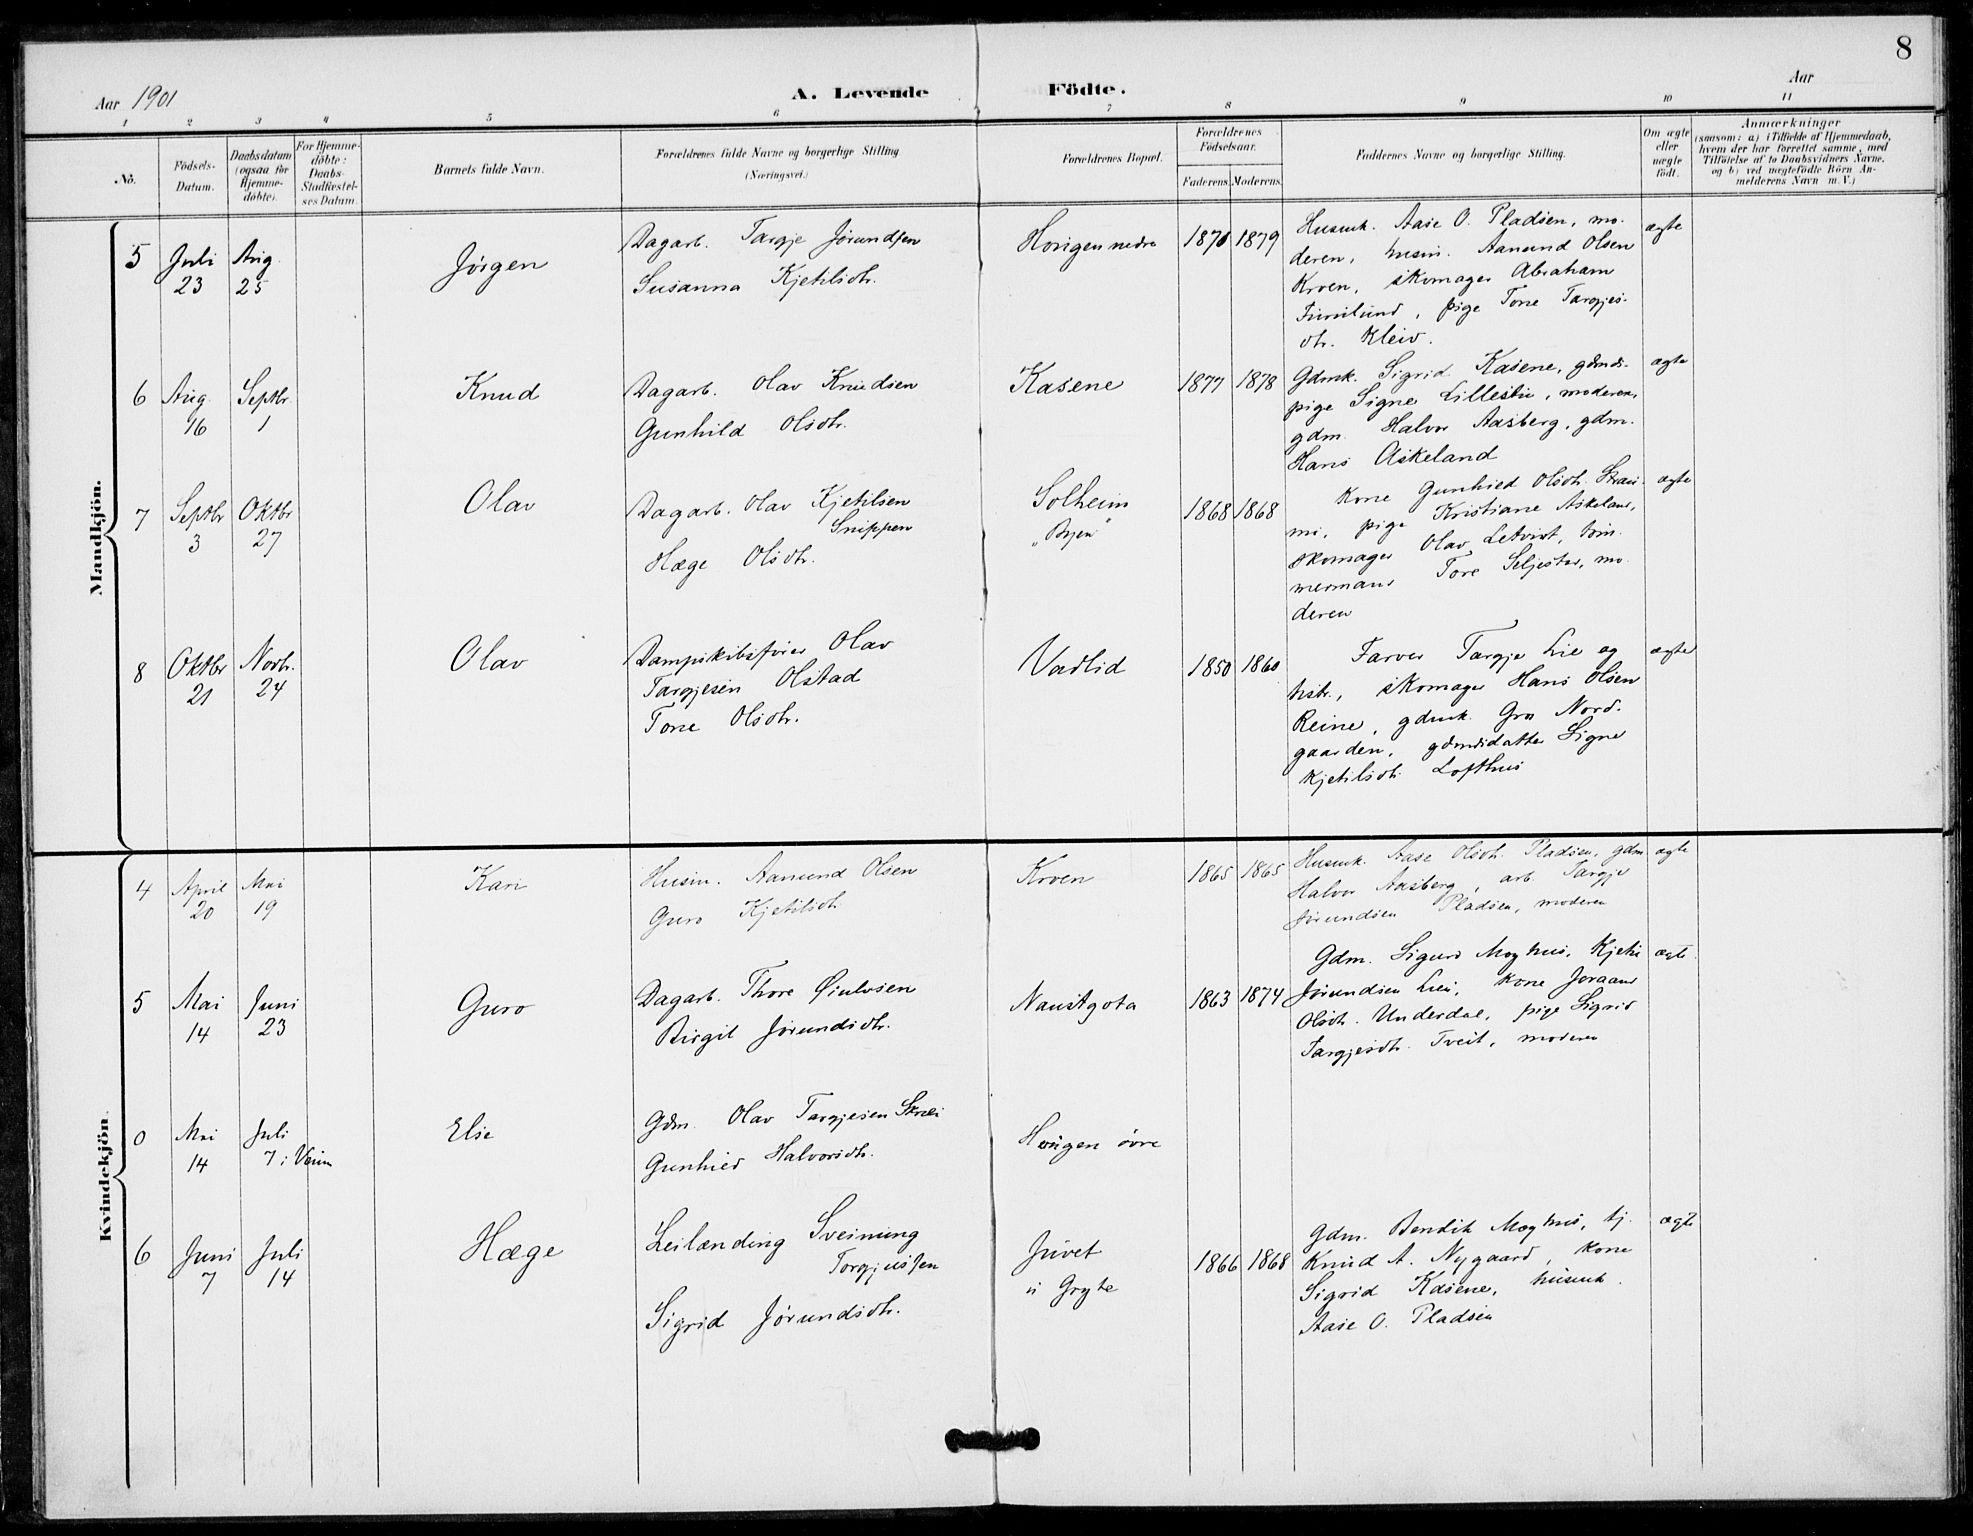 8
Aar 1901
A. Levende Födte.
Aar
1 2 3 4 5 6 7 8 9 10 11
No.
Födsels-
Datum.
Daabsdatum
(ogsaa for
Hjemme-
döbte).
For Hjemme-
döbte:
Daabs-
Stadfæstel-
ses Datum.
Barnets fulde Navn.
Forældrenes fulde Navne og borgerlige Stilling
(Næringsvei.)
Forældrenes Bopæl.
Forældrenes
Födselsaar.
Faderens. Moderens.
Faddernes Navne og borgerlige Stilling.
Om ægte
eller
uægte
födt.
Anmærkninger
(saasom: a) i Tilfælde af Hjemmedaab,
hvem der har forrettet samme, med
Tilföielse af to Daabsvidners Navne.
og b) ved uægtefödte Börn An-
melderens Navn m. V.)
Mandkjön.
5 Juli 23 Aug. 25
Jørgen
Dagarb. Targje Jørundsen
Susanna Kjetilsdtr.
Horigen nedre
1879
Husmk. Aase O. Pladsen, mo-
deren, husm. Aanund Olsen
Kroen, skomager Abraham
Furulund, pige Tone Targjes-
dtr. Kleiv.
ægte
6 Aug. 16 Septbr. 1
Knud
Dagarb. Olav Knudsen
Gunhild Olsdtr.
Kasene
1877 1878
Gdmk. Sigrid Kasene, gdmds-
pige Signe moderen,
gdm. Halvor Aasberg, gdm.
Hans Askeland
ægte
7 Septbr 3 Oktbr 27
Olav
Dagarb. Olav Kjetilsen
Snippen
Hæge Olsdtr.
Solheim
"Byen"
1868 1868
Kone Gunhild Olsdtr.
pige Kristiane Askeland,
skomager Olav töm-
mermand Tore Seljestad, mo-
deren
ægte
8 Oktbr 21 Novbr. 24
Olav
Dampskibsfører Olav
Targjesen Olstad
Tone Olsdtr.
Vadlid
1850 1860
Farver Targje Lie og
hstr., skomager Hans Olsen
Reine, gdmk. Gro Nord-
gaarden, gdmdsdatter Signe
Kjetilsdtr. Lofthus
ægte
Kvindekjön.
4 April 20 Mai 19
Kari
Husm. Aanund Olsen
Guro Kjetilsdtr.
Kroen
1865 1865
Husmk. Aase Olsdtr. Pladsen, gdm.
Halvor Aasberg, arb. Targje
Jørundsen Pladsen, moderen
ægte
5 Mai 14 Juni 23
Guro
Dagarb. Thore Øiulvsen
Birgit Jørundsdtr.
Naustgota
1863 1874
Gdm. Sigurd Moghus, Kjetil
Jørundsen Lien, kone Joraand
Olsdtr. Underdal, pige Sigrid
Targjesdtr. Tveit, moderen
ægte
0 Mai 14 Juli 7 i Veum
Else
Gdm. Olav Targjesen Skræi
Gunhild Halvorsdtr.
Horigen övre
6 Juni 7 Juli 14
Hæge
Leilænding Sveinung
Torgjusen
Sigrid Jørundsdtr.
Juvet
i Gryte
1866 1868
Gdm. Bendik Moghus, tj.
Knud A. Nygaard, kone
Sigrid Kasene, husmk.
Aase O. Pladsen
ægte